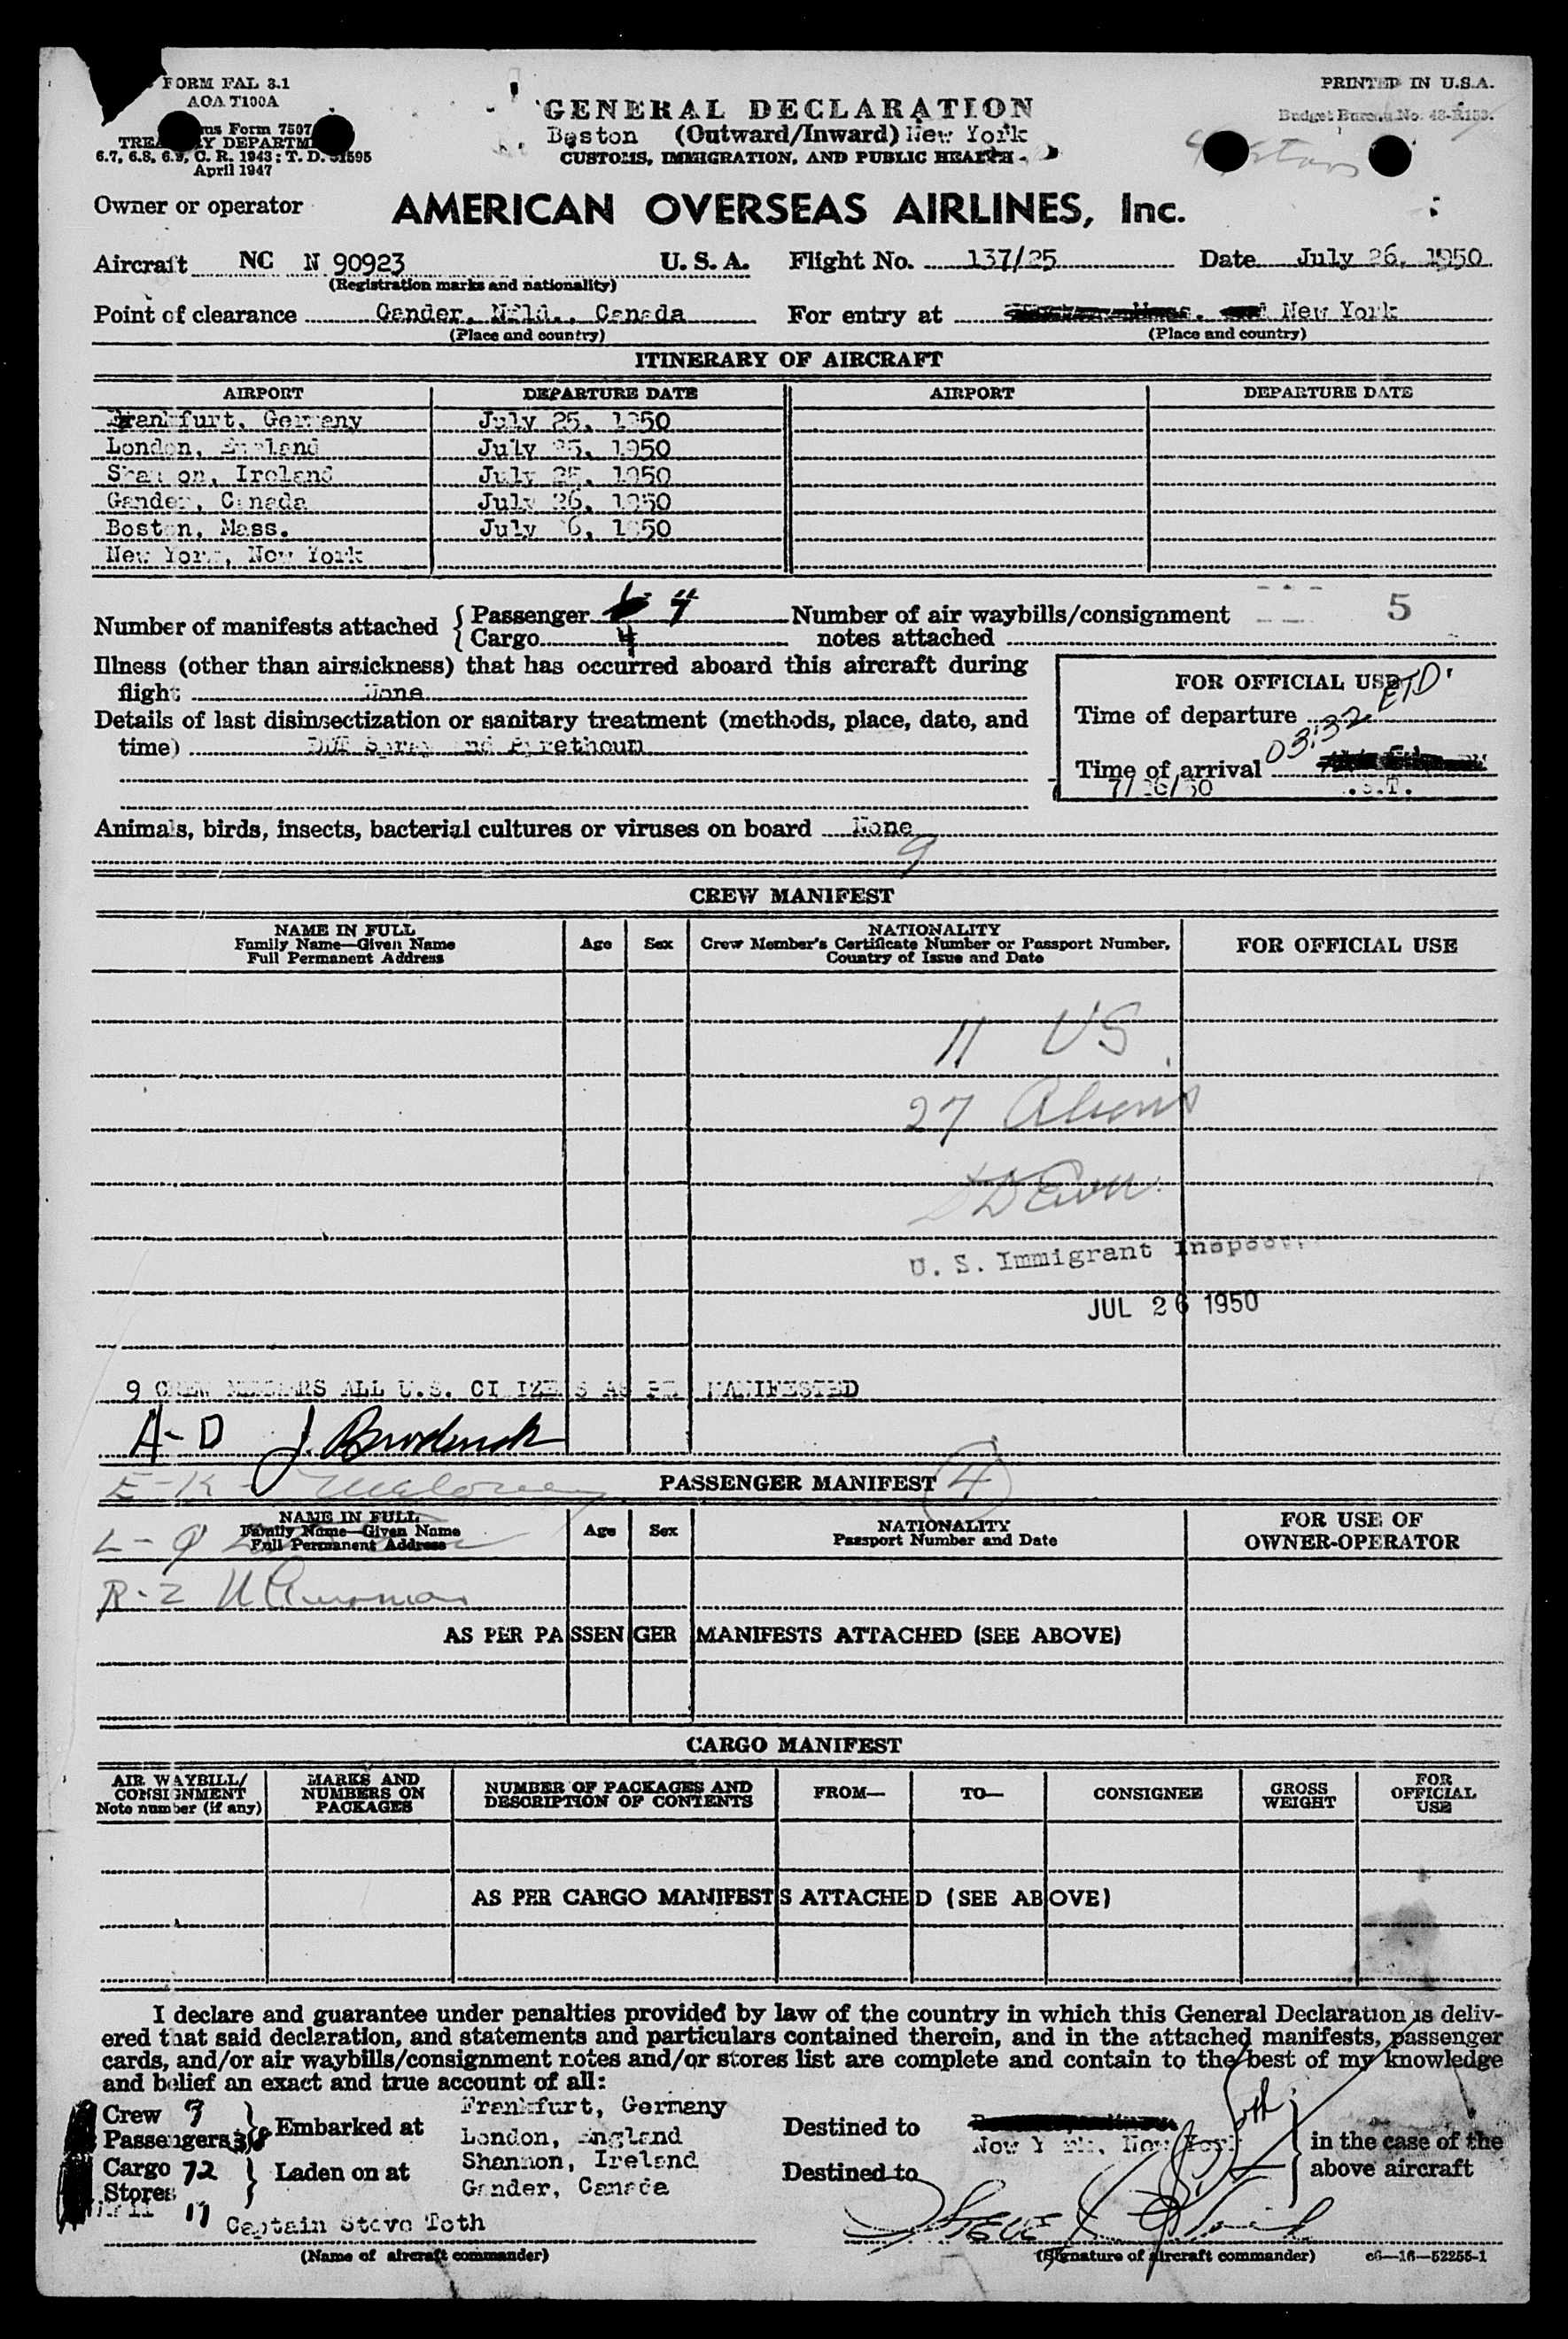 FORM FAL 3.1
AOA T100A
PRINTED IN U.S.A.
Form 7507
TREASURY DEPARTMENT
6.7, 6.8, 6.9, C. R. 1943; T. D. 51595
April 1947
Budget Bureau No.
GENERAL DECLARATION
Boston (Outward/Inward) New York
CUSTOMS, IMMIGRATION, AND PUBLIC HEALTH
Owner or operator AMERICAN OVERSEAS AIRLINES, Inc.
Aircraft NC N 90923 U. S. A. Flight No. 137/25 Date July 26, 1950
(Registration marks and nationality)
Point of clearance Gander, Nfld., Canada For entry at New York
(Place and country) (Place and country)
ITINERARY OF AIRCRAFT
AIRPORT DEPARTURE DATE AIRPORT DEPARTURE DATE
Frankfurt, Germany July 25, 1950
London, England July 25, 1950
Shannon, Ireland July 25, 1950
Gander, Canada July 26, 1950
Boston, Mass. July 26, 1950
New York, New York
Number of manifests attached { Passenger 4 Number of air waybills/consignment 5
Cargo 4 notes attached
Illness (other than airsickness) that has occurred aboard this aircraft during
flight None
Details of last disinsectization or sanitary treatment (methods, place, date, and
time) DDT Spray and Pyrethoum
FOR OFFICIAL USE
Time of departure
03:32 ETD
Time of arrival
7/26/50
Animals, birds, insects, bacterial cultures or viruses on board None
9
CREW MANIFEST
NAME IN FULL
Family Name—Given Name
Full Permanent Address
Age Sex
NATIONALITY
Crew Member's Certificate Number or Passport Number,
Country of Issue and Date
FOR OFFICIAL USE
11 US
27 Aliens
U. S. Immigrant Inspector
JUL 26 1950
9 CREW MEMBERS ALL U.S. CITIZENS AS PER MANIFESTED
A-D J. Broderick
E-K Maloney
PASSENGER MANIFEST 4
NAME IN FULL
Family Name—Given Name
Full Permanent Address
Age Sex
NATIONALITY
Passport Number and Date
FOR USE OF
OWNER-OPERATOR
L-Q
R-Z
AS PER PASSENGER MANIFESTS ATTACHED (SEE ABOVE)
CARGO MANIFEST
AIR WAYBILL/
CONSIGNMENT
Note number (if any)
MARKS AND
NUMBERS ON
PACKAGES
NUMBER OF PACKAGES AND
DESCRIPTION OF CONTENTS
FROM—
TO—
CONSIGNEE
GROSS
WEIGHT
FOR
OFFICIAL
USE
AS PER CARGO MANIFESTS ATTACHED (SEE ABOVE)
I declare and guarantee under penalties provided by law of the country in which this General Declaration is deliv-
ered that said declaration, and statements and particulars contained therein, and in the attached manifests, passenger
cards, and/or air waybills/consignment notes and/or stores list are complete and contain to the best of my knowledge
and belief an exact and true account of all:
Crew 9
Passengers 38 } Embarked at
Cargo 72
Stores } Laden on at
Mail 17
Frankfurt, Germany
London, England
Shannon, Ireland
Gander, Canada
Destined to
New York, New York
Destined to
} in the case of the
above aircraft
Captain Steve Toth
(Name of aircraft commander)
(Signature of aircraft commander) c6—16—52255-1